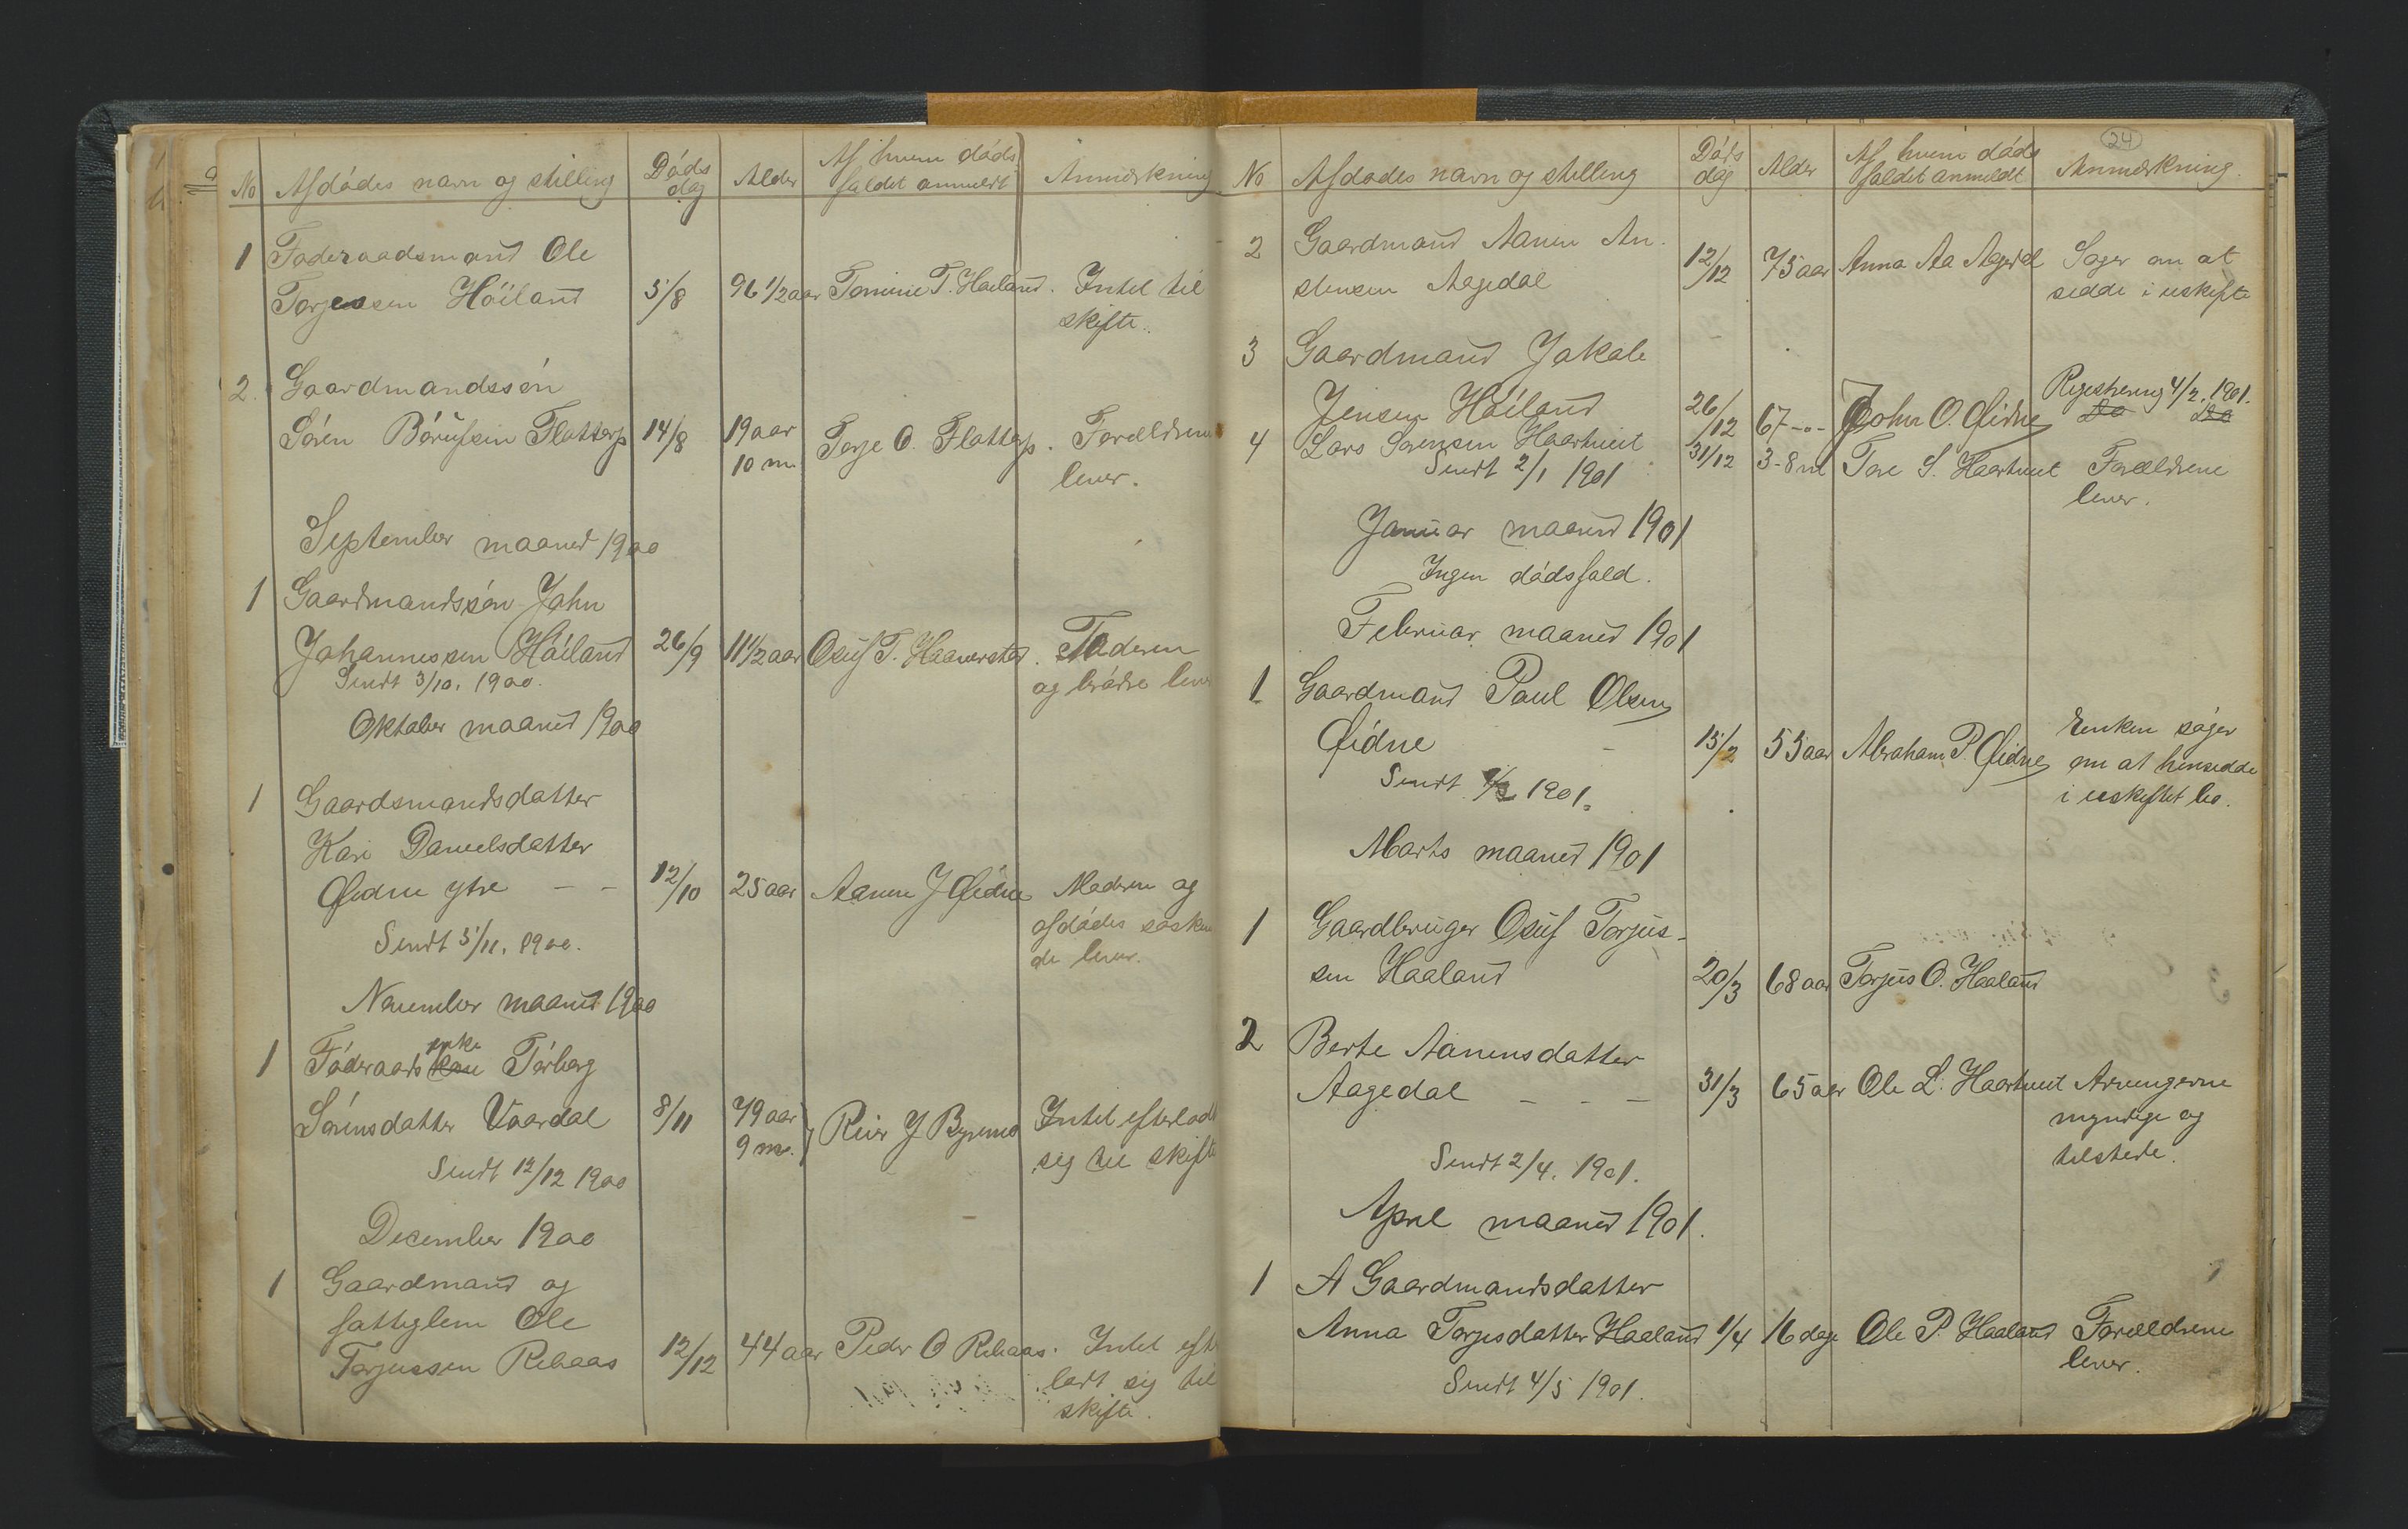 No Afdødes navn og stilling Døds dag Alder Af hvem døds faldet anmeldt Anmærkning
1 Føderaadsmand Ole
Torjussen Høiland 5/8 96 1/2 aar Tomine T. Høiland. Intet til
skifte.
2. Gaardmandssøn
Søren Børufsen Flottorp 14/8 19 aar Torje O. Flottorp. Forældrene
10 m. lever.
September maaned 1900
1 Gaardmandssøn John
Johannessen Høiland 26/9 11 1/2 aar Osuf T. Haaverstad. Faderen
Sendt 3/10. 1900. og brødre lever
Oktober maaned 1900
1 Gaardsmandsdatter
Kari Danielsdatter
Øidne ytre - - 12/10 25 aar Aanen J Øidne Moderen og
afdødes søsken
Sendt 5/11. 1900. de lever.
November maaned 1900
enke
1 Føderaads kone Tørborg
Sørensdatter Vaardal 8/11 79 aar Reier J Byremo Intet efterladt
9 m. sig til skifte
Sendt 12/12 1900
December 1900
1 Gaardmand og
fattiglem Ole
Torjussen Rebaas 12/12 44 aar Peder O Rebaas. Intet efter
ladt sig til
skifte.
24
No Afdødes navn og stilling Døds dag Alder Af hvem døds faldet anmeldt Anmærkning.
2 Gaardmand Aanen An-
stensen Aagedal 12/12 75 aar Anna Aa Aagedal Søger om at
sedde i uskifte
3 Gaardmand Jakob
Jensen Høiland 26/12 67 -"- John O. Øidne Registrering 4/2. 1901.
Do Do
4 Lars Sørensen Haartveit 31/12 3 - 8 m Tore S. Haartveit Forældrene
Sendt 2/1 1901 lever.
Januar maaned 1901
Ingen dødsfald.
Februar maaned 1901
1 Gaardmand Paul Olsen
Øidne 15/2 55 aar Abraham P. Øidne Enken søger
om at hensedde
Sendt 1/3 1901. i uskiftet bo.
Marts maaned 1901
1 Gaardbruger Osuf Torjus-
sen Haaland 20/3 68 aar Torjus O. Haaland
2 Berte Aanensdatter
Aagedal - - - 31/3 65 aar Ole L. Haartveit Arvingerne
myndige og
Sendt 2/4. 1901. tilstede.
April maaned 1901.
1 A Gaardmandsdatter
Anna Torjusdatter Haaland 1/4 16 dage Ole P. Haaland Forældrene
Sendt 4/5 1901. lever.